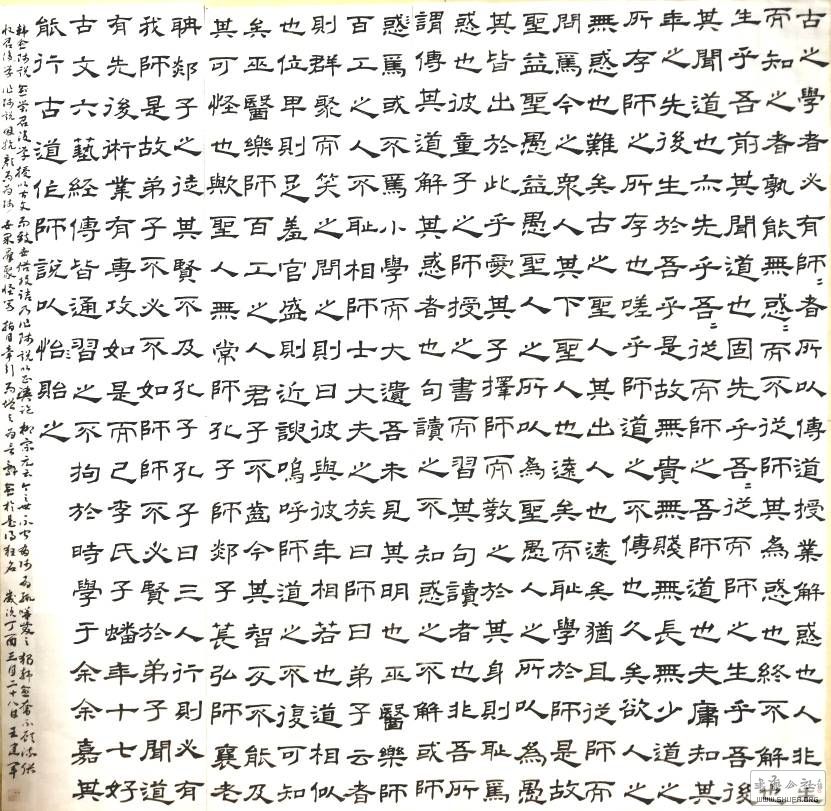 古之學者必有師=者所以傳道授業解惑也人非生
而知之者孰能無惑=而不從師其為惑也終不解也
生乎吾前其聞道也固先乎吾=從而師之生乎吾後
其聞道也亦先乎吾=從而師之吾師道也夫庸知其
年之先後生於吾乎是故無貴無賤無長無少道之
所存師之所存也嗟乎師道之不傳也久矣欲人之
無惑也難矣古之聖人其出人也遠矣猶且從師而
問焉今之眾人其下聖人也遠矣而恥學於師是故
聖益聖愚益愚聖人之所以為聖愚人之所以為愚
其皆出於此乎愛其子擇師而教之於其身則恥焉
惑也彼童子之師授之書而習其句讀者也非吾所
謂傳其道解其惑者也句讀之不知惑之不解或師
惑焉或不焉小學而大遺吾未見其明也巫醫樂師
百工之人不恥相師士大夫之族曰師曰弟子云者
則群聚而笑之問之則曰彼與彼年相若也道相似
也位卑則足羞官盛則近諛嗚呼師道之不復可知
矣巫醫樂師百工之人君子不齒今其智反不能及
其可怪也歟聖人無常師孔子師郯子萇弘師襄老
聃郯子之徒其賢不及孔子孔子曰三人行則必有
我師是故弟子不必不如師師不必賢於弟子聞道
有先後術業有專攻如是而已李氏子蟠年十七好
古文六藝經傳皆通習之不拘於時學于余余嘉其
能行古道作師說以怡貽之
歲次丁酉三月二十八日